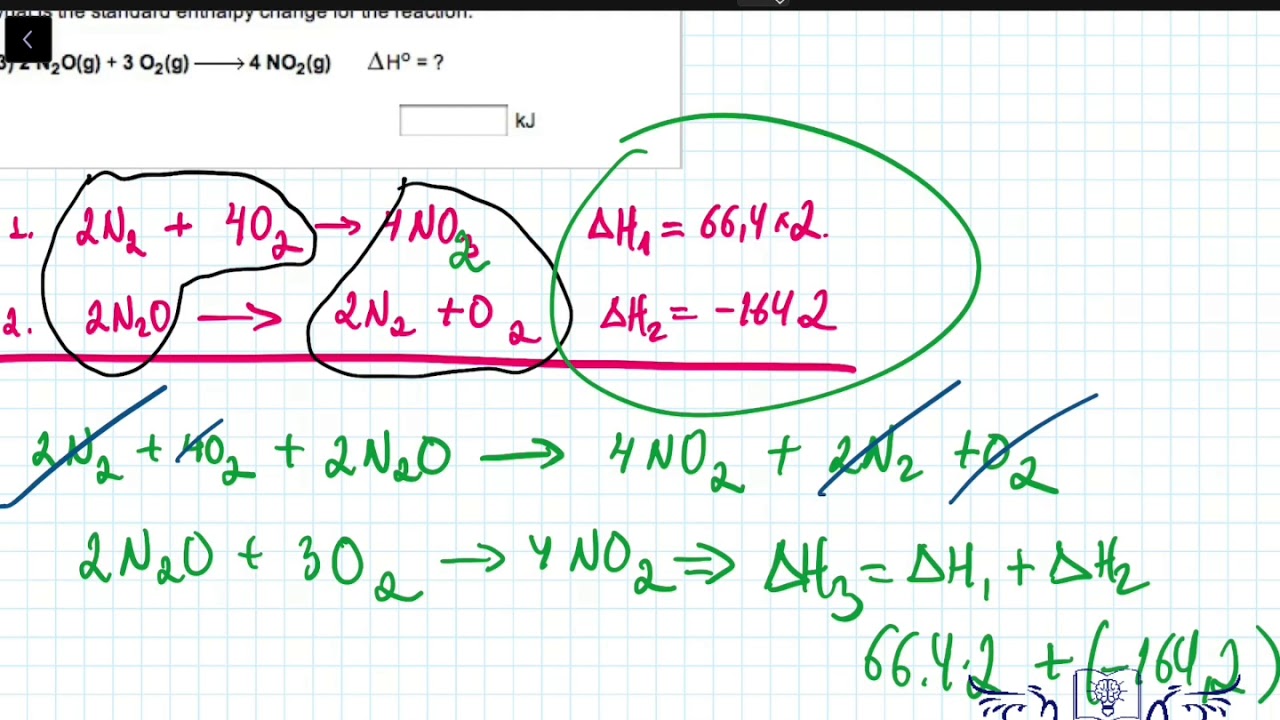 what is the standard enthalpy change for the reaction:
3) 2 N₂O(g) + 3 O₂(g) ⟶ 4 NO₂(g) ΔH° = ?
kJ
1. 2N₂ + 4O₂ → 4NO₂ ΔH₁ = 66,4 × 2.
2. 2N₂O → 2N₂ + O₂ ΔH₂ = -164 2
2N₂ + 4O₂ + 2N₂O → 4NO₂ + 2N₂ + O₂
2N₂O + 3O₂ → 4NO₂ ⇒ ΔH₃ = ΔH₁ + ΔH₂
66.4·2 + (-164,2)